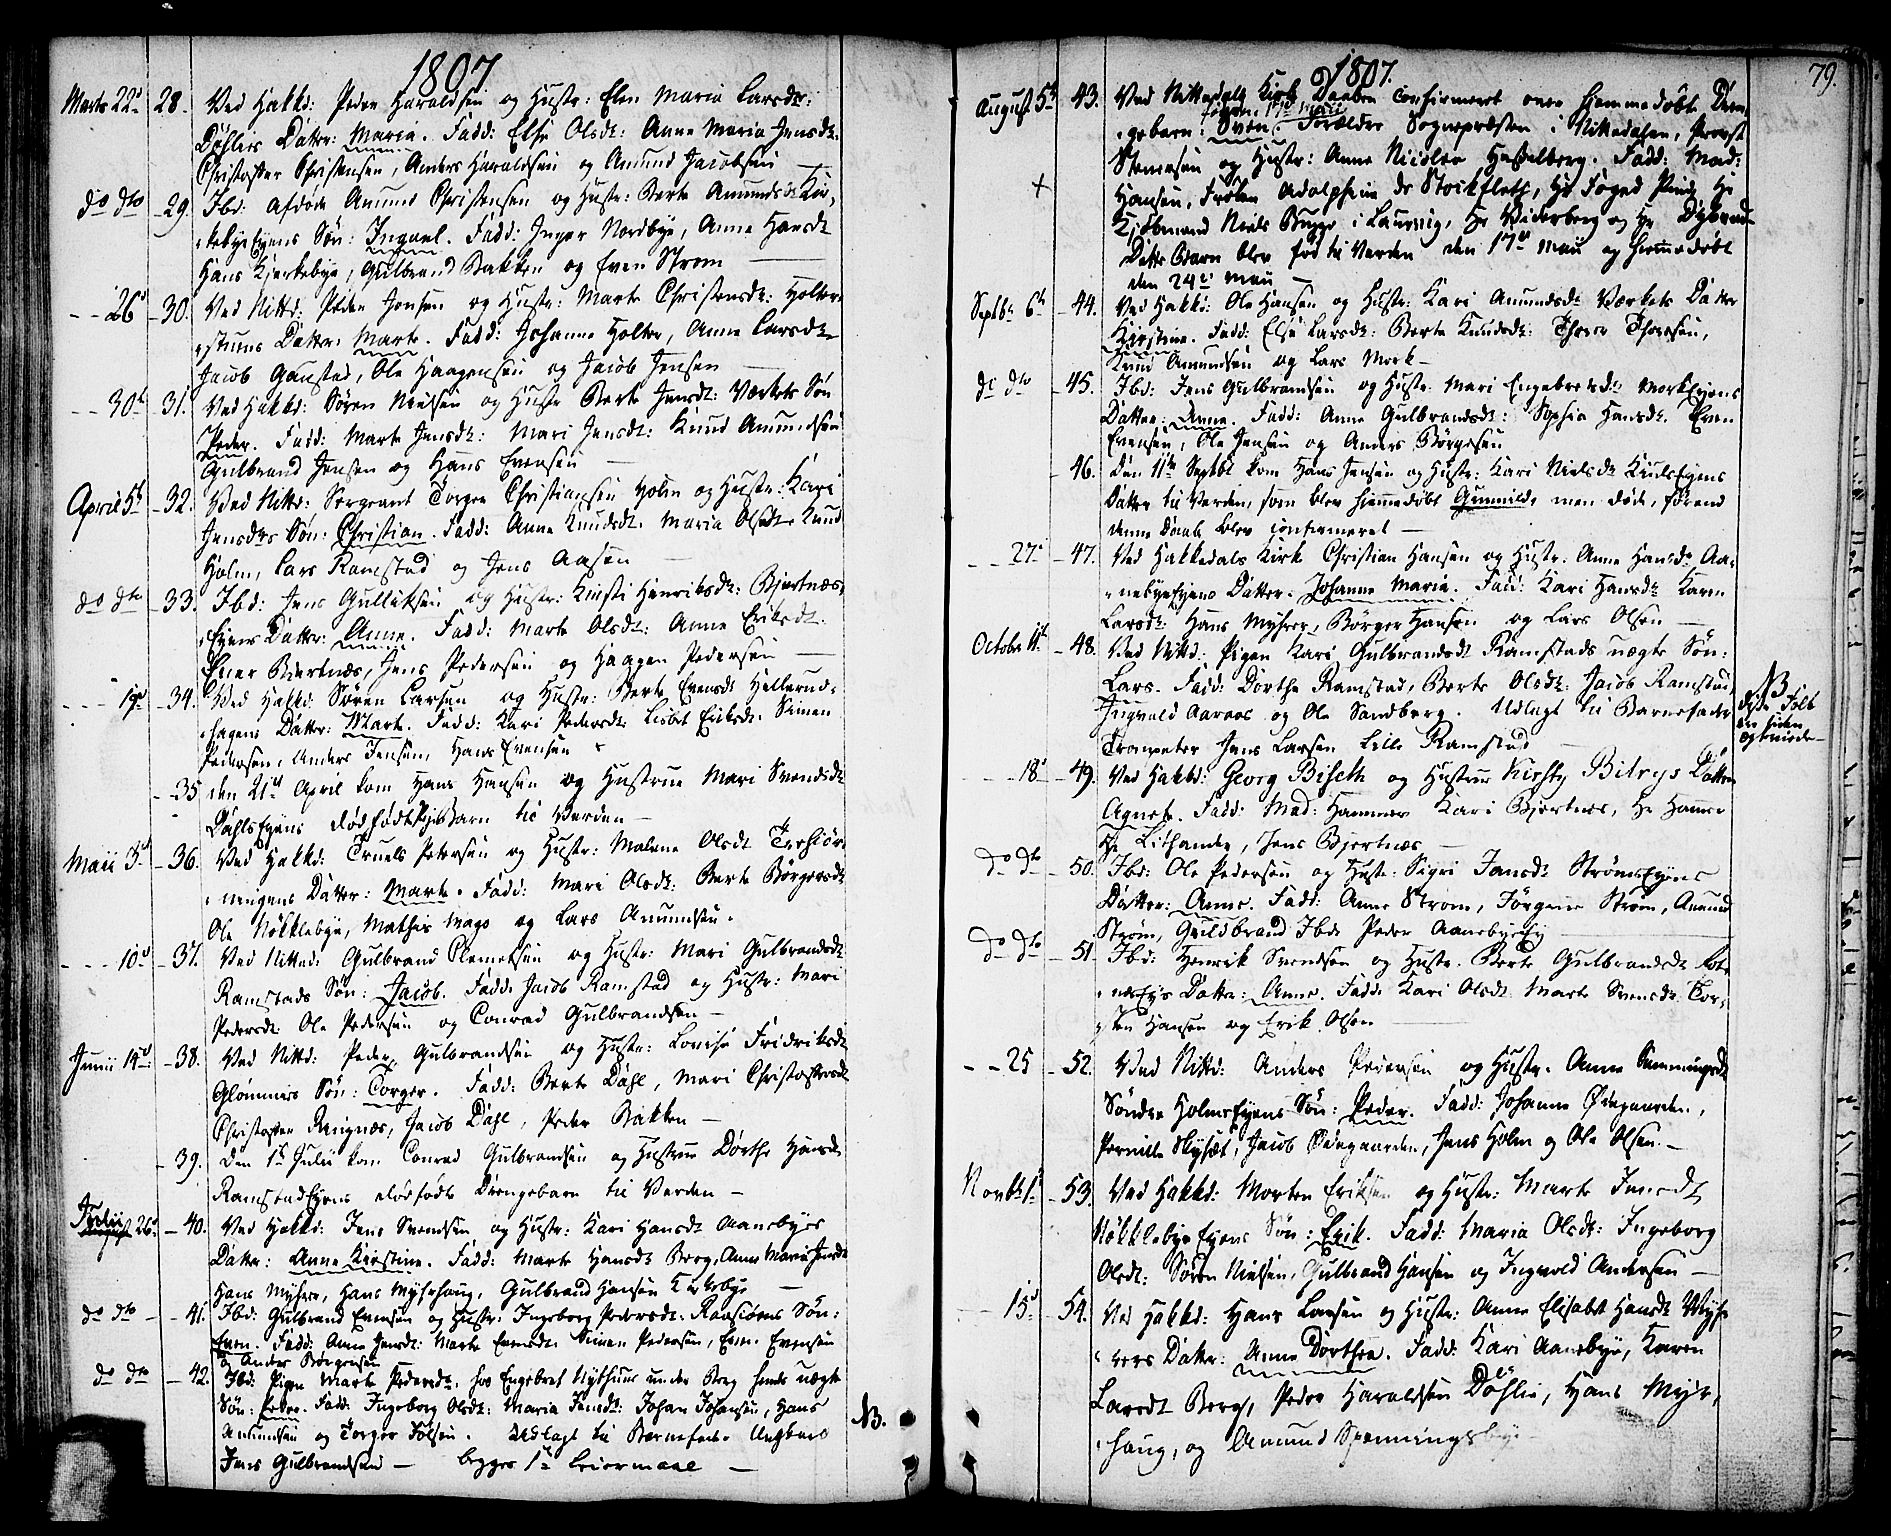 1807
Marts 22d 28. Ved Hakkd: Peder Haraldsen og Hustr: Elen Maria Larsdr:
Døhlies Datter: Maria. Fadd: Else Olsdt: Anne Maria Jensdt:
Christopher Christensen, Anders Haraldsen og Amund Jacobsen —
do dto 29. Ibd: afdøde Amund Christensen og Hustr: Berte Amundsdr Kir-
kebye Eyens Søn: Ingvel. Fadd: Inger Nordbye, Anne Hansdt
Hans Kjerkebye, Gulbrand Bakken og Even Strøm —
26d 30. Ved Nittd: Peder Jensen og Hustr: Marte Christensdt: Holter-
stuens Datter: Marte. Fadd: Johanne Holter, Anne Larsdt
Jacob Gaustad, Ole Haagensen og Jacob Jensen —
30t 31. Ved Hakkd: Søren Nielsen og Hustr Berte Jensdt: Værkets Søn
Peder. Fadd: Marte Jensdt: Mari Jensdt: Knud Amundsen
Gulbrand Jensen og Hans Evensen —
April 5t 32. Ved Nittd: Sergeant Torger Christiansen Holm og Hustr: Kari
Jensdrs Søn: Christian. Fadd: Anne Knudsdt: Maria Olsdt Knud
Holm, Lars Ramstad og Jens Aasen —
do dto 33. Ibd: Jens Gulliksen og Hustr: Kirsti Henriksdt: Bjertnæs-
Eyens Datter: Anne. Fadd: Marte Olsdt: Anne Eriksdt.
Peder Bjertnæs, Jens Pedersen og Haagen Pedersen —
19d 34. Ved Hakkd Søren Larsen og Hustr: Berte Evensdt Hellerud-
hagens Datter: Marte. Fadd: Kari Pedersdt: Lisbet Eriksdt. Simen
Pedersen, Anders Jensen, Hans Evensen
35 den 21d April kom Hans Hansen og Hustrue Mari Svendsdt
Dahls Eyens dødfødt Pige Barn til Verden —
Maii 3d 36. Ved Hakkd: Truels Petersen og Hustr: Malene Olsdt
Datter: Marte. Fadd: Mari Olsdt: Berte Børgersdt
Ole Nøkklebye, Mathis Mago og Lars Amundsen.
10d 37. Ved Nittd: Gulbrand Clemetsen og Hustr: Mari Gulbrandsdt
Ramstads Søn: Jacob. Fadd: Jacob Ramstad og Hustr: Mari
Pedersdt: Ole Pedersen og Conrad Gulbrandsen —
Junii 14d 38. Ved Nittd: Peder Gulbrandsen og Hustr: Lovise Fridriksdt
Glommens Søn: Torger. Fadd: Berte Dahl, Mari Christophersdt
Christopher Rengnæs, Jacob Dahl, Peder Bakken —
39. den 1t Julii kom Conrad Gulbrandsen og Hustrue Dorthe Hansdt
Ramstad Eyens dødfødte Drengebarn til Verden —
Julii 26d 40. Ved Hakkd: Jens Svendsen og Hustr: Kari Hansdt Aanebyes
Datter: Anne Kirstine. Fadd: Marte Hansdt Berg, Anne Marie Jensdt
Hans Myhrer, Hans Myhrhaug, Gulbrand Hansen Kirkebye —
do dto 41. Ibd: Gulbrand Evensen og Hustr: Ingeborg Pedersdt: Søn:
Even. Fadd: Anne Jensdt: Marte Evensdt. Simen Pedersen, Even Evensen
og Anders Børgersen
do dto 42. Ibd: Pigen Marte Pedersdt. hos Engebret Nysthuus under Berg hendes uægte
Søn: Peder. Fadd: Ingeborg Olsdt: Maria Jensdt: Johan Johansen, Hans
Amundsen og Torger Tolfsen. Udlagt til Barnefader Ungkarl
Jens Gulbrandsen — begges 1te Leiermaal —
NB.
1807.
79.
August 5t 43. Ved Nittedals Kirk Daaben Confirmeret over Hjemmedøbt Dren-
gebarn: Sven. Forældre Sognepræsten i Nittedalen, Provst
Stenersen og Hustr: Anne Nicolea Hesselberg. Fadd: Mad:
Hansen, Frøken Adolphine de Stockfleth, Hr Foged Hr
Kjøbmand Niels Bugge i Laurvig, Hr Widerberg og Hr
Dette Barn blev fød til Verden den 17d Maii og hiemmedøbt
den 24d Maii —
Septbr 6t 44. Ved Hakkd: Ole Hansen og Hustr: Kari Amundsdt Værkets Datter
Kirstine. Fadd: Else Larsdt: Berte Knudsdt: Thoer Thoersen,
Knud Amundsen og Lars Mork —
do dto 45. Ibd: Jens Gulbrandsen og Hustr. Mari Engebretsdt Mork Eyens
Datter: Anne. Fadd: Anne Gulbrandsdt: Sophia Hansdt. Even
Evensen, Ole Jensen og Anders Børgersen
46. den 11te Septbr kom Hans Jensen og Hustr: Kari Nielsdt Eyens
Datter til Verden, som blev hiemmedøbt Gunnild, men døde, førend
denne Daab blev confirmeret —
27d 47. Ved Hakkedals Kirk Christian Hansen og Hustr. Anne Hansdt Aa-
nebye Eyens Datter. Johanne Maria. Fadd: Kari Hansdt Karen
Larsdt: Hans Myhrer, Børger Hansen og Lars Olsen —
October 11t 48. Ved Nittd: Pigen Kari Gulbrandsdt Ramstads uægte Søn:
Lars. Fadd: Dorthe Ramstad, Berte Olsdt: Jacob Ramstad,
Ingvald Aaraas og Ole Sandberg. Udlagt til Barnefader
Trompeter Jens Larsen Lille Ramstad —
NB
disse Folk
ere siden
egteviede —
18d 49. Ved Hakkd: Georg Biseth og Hustrue Kirsty Bilrys Datter
Agnet. Fadd: Mad: Hammer Kari Bjertnes, Hr Hamer
Hr Lithander, Jens Bjertnæs —
do dto 50. Ibd: Ole Pedersen og Hustr: Sigri Jansdt Strøms Eyens
Datter: Anne. Fadd: Anne Strøm, Jørgine Strøm, Amund
Strøm, Guldbrand Ibd. Peder Aanebye Ey —
do dto 51. Ibd: Henrik Svendsen og Hustr. Berte Gulbrandsdt
Eys Datter: Anne. Fadd: Kari Olsdt. Marte Svensdt. Tor-
sten Hansen og Erik Olsen —
25 52. Ved Nittd: Anders Pedersen og Hustr. Anne Semmingsdt
Søndre Holms Eyens Søn: Peder. Fadd: Johanne Ødegaarden,
Pernille Skyset, Jacob Ødegaarden, Jens Holm og Ole Olsen. —
Novbr 1d 53. Ved Hakkd: Morten Eriksen og Hustr: Marte Jensdt
Nøkklebye Eyens Søn: Erik. Fadd: Maria Olsdt: Ingeborg
Olsdt: Søren Nielsen, Gulbrand Hansen og Ingvold Andersen —
15d 54. Ved Hakkd: Hans Larsen og Hustr: Anne Elisabet Hansdt Myh-
rers Datter: Anne Dorthea. Fadd: Kari Aanebye, Karen
Larsdt Berg, Peder Haraldsen Døhlie, Hans Myhr-
haug, og Amund Spenningsbye